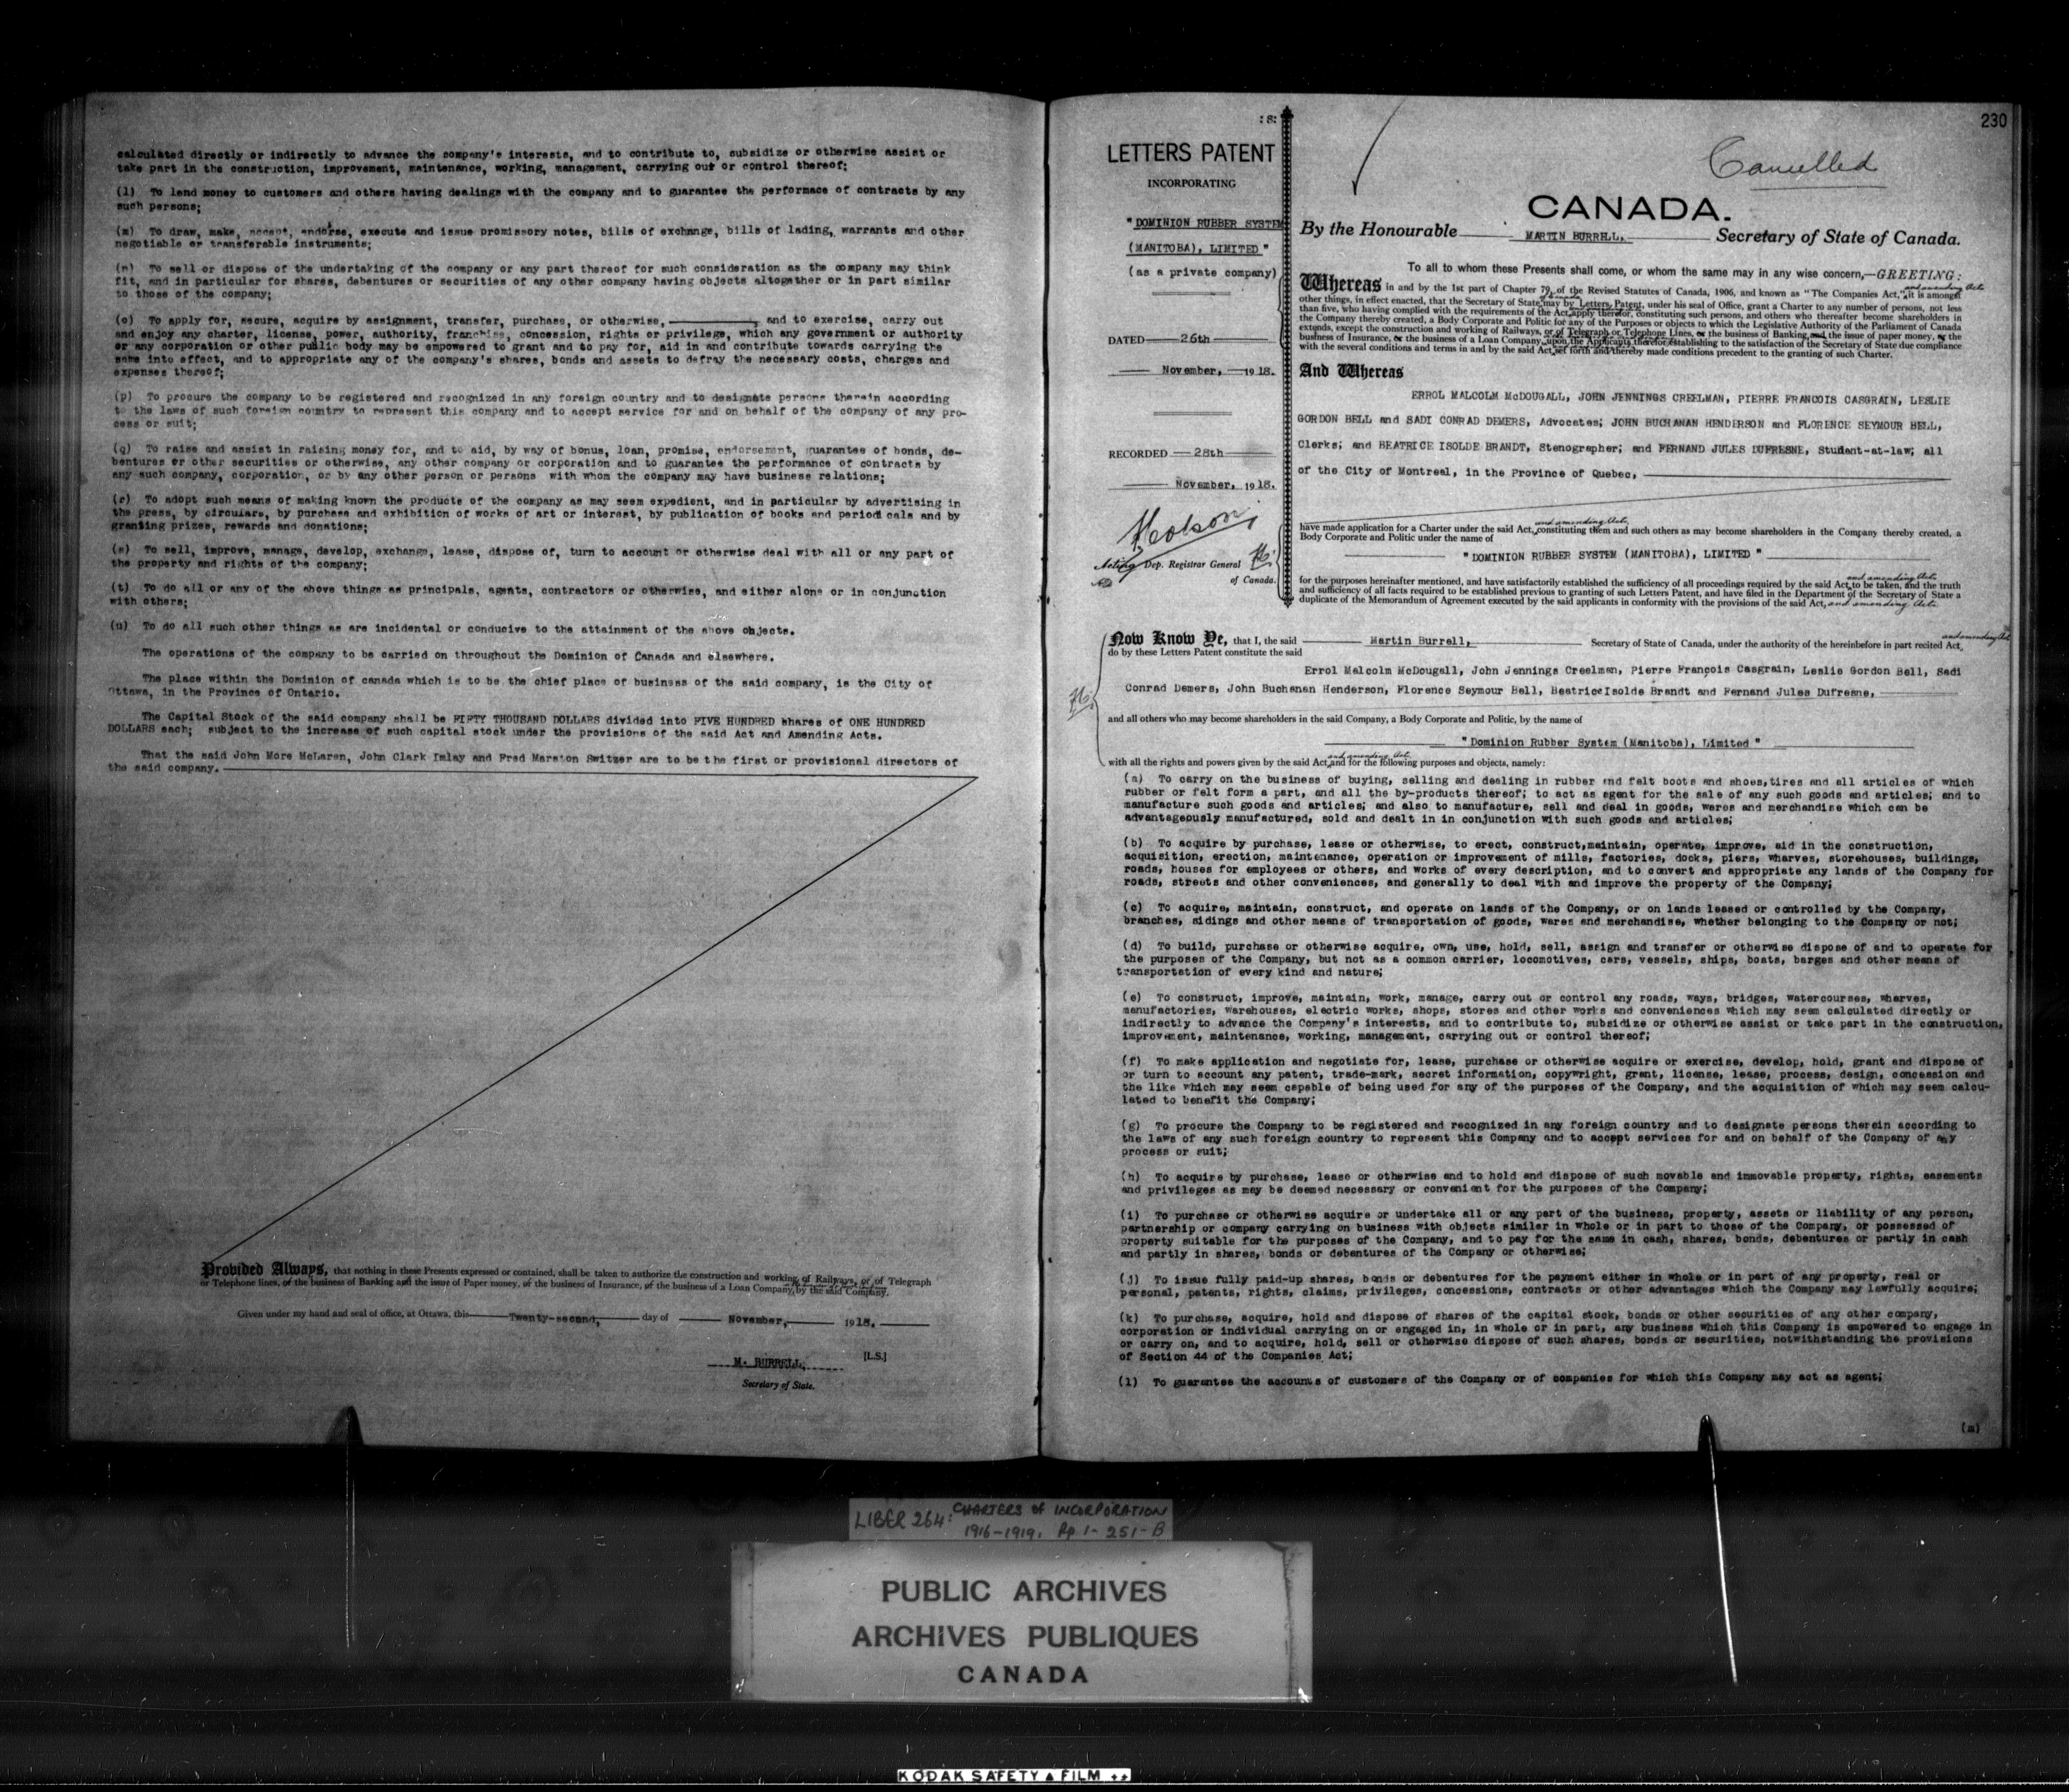 calculated directly or indirectly to advance the company's interests, and to contribute to, subsidize or otherwise assist or
take part in the construction, improvement, maintenance, working, management, carrying out or control thereof;
(l) To lend money to customers and others having dealings with the company and to guarantee the performace of contracts by any
such persons;
(m) To draw, make, accept, endorse, execute and issue promissory notes, bills of exchange, bills of lading, warrants and other
negotiable or transferable instruments;
(n) To sell or dispose of the undertaking of the company or any part thereof for such consideration as the company may think
fit, and in particular for shares, debentures or securities of any other company having objects altogether or in part similar
to those of the company;
(o) To apply for, secure, acquire by assignment, transfer, purchase, or otherwise, and to exercise, carry out
and enjoy any charter, license, power, authority, franchise, concession, rights or privilege, which any government or authority
or any corporation or other public body may be empowered to grant and to pay for, aid in and contribute towards carrying the
same into effect, and to appropriate any of the company's shares, bonds and assets to defray the necessary costs, charges and
expenses thereof;
(p) To procure the company to be registered and recognized in any foreign country and to designate persons therein according
to the laws of such foreign country to represent this company and to accept service for and on behalf of the company of any pro-
cess or suit;
(q) To raise and assist in raising money for, and to aid, by way of bonus, loan, promise, endorsement, guarantee of bonds, de-
bentures or other securities or otherwise, any other company or corporation and to guarantee the performance of contracts by
any such company, corporation, or by any other person or persons with whom the company may have business relations;
(r) To adopt such means of making known the products of the company as may seem expedient, and in particular by advertising in
the press, by circulars, by purchase and exhibition of works of art or interest, by publication of books and periodicals and by
granting prizes, rewards and donations;
(s) To sell, improve, manage, develop, exchange, lease, dispose of, turn to account or otherwise deal with all or any part of
the property and rights of the company;
(t) To do all or any of the above things as principals, agents, contractors or otherwise, and either alone or in conjunction
with others;
(u) To do all such other things as are incidental or conducive to the attainment of the above objects.
The operations of the company to be carried on throughout the Dominion of Canada and elsewhere.
The place within the Dominion of canada which is to be the chief place of business of the said company, is the City of
Ottawa, in the Province of Ontario.
The Capital Stock of the said company shall be FIFTY THOUSAND DOLLARS divided into FIVE HUNDRED shares of ONE HUNDRED
DOLLARS each; subject to the increase of such capital stock under the provisions of the said Act and Amending Acts.
That the said John More McLaren, John Clark Imlay and Fred Marston Switzer are to be the first or provisional directors of
the said company.
Provided Always, that nothing in these Presents expressed or contained, shall be taken to authorize the construction and working of Railways, or of Telegraph
or Telephone lines, or the business of Banking and the issue of Paper money, or the business of Insurance, or the business of a Loan Company, by the said Company.
Given under my hand and seal of office, at Ottawa, this Twenty-second, day of November, 1918.
M. BURRELL, [L.S.]
Secretary of State.
230
:8:
LETTERS PATENT
INCORPORATING
"DOMINION RUBBER SYSTEM
(MANITOBA), LIMITED"
(as a private company)
DATED 26th
November, 1918.
RECORDED 28th
November, 1918.
Acting Dep. Registrar General
of Canada.
Cancelled
CANADA.
By the Honourable MARTIN BURRELL, Secretary of State of Canada.
To all to whom these Presents shall come, or whom the same may in any wise concern,—GREETING:
Whereas in and by the 1st part of Chapter 79, of the Revised Statutes of Canada, 1906, and known as "The Companies Act," and amending Acts it is amongst
other things, in effect enacted, that the Secretary of State of Canada may by Letters Patent, under his seal of Office, grant a Charter to any number of persons, not less
than five, who having complied with the requirements of the Act, apply therefor, constituting such persons, and others who thereafter become shareholders in
the Company thereby created, a Body Corporate and Politic for any of the Purposes or objects to which the Legislative Authority of the Parliament of Canada
extends, except the construction and working of Railways, or of Telegraph or Telephone Lines, or the business of Banking and the issue of paper money, or the
business of Insurance, or the business of a Loan Company, upon the Applicants therefor establishing to the satisfaction of the Secretary of State due compliance
with the several conditions and terms in and by the said Act, set forth and thereby made conditions precedent to the granting of such Charter.
And Whereas
ERROL MALCOLM McDOUGALL, JOHN JENNINGS CREELMAN, PIERRE FRANCOIS CASGRAIN, LESLIE
GORDON BELL and SADI CONRAD DEMERS, Advocates; JOHN BUCHANAN HENDERSON and FLORENCE SEYMOUR BELL,
Clerks; and BEATRICE ISOLDE BRANDT, Stenographer; and FERNAND JULES DUFRESNE, Student-at-law; all
of the City of Montreal, in the Province of Quebec,
have made application for a Charter under the said Act, and amending Acts, constituting them and such others as may become shareholders in the Company thereby created, a
Body Corporate and Politic under the name of
"DOMINION RUBBER SYSTEM (MANITOBA), LIMITED"
for the purposes hereinafter mentioned, and have satisfactorily established the sufficiency of all proceedings required by the said Act and amending Acts to be taken, and the truth
and sufficiency of all facts required to be established previous to granting of such Letters Patent, and have filed in the Department of the Secretary of State a
duplicate of the Memorandum of Agreement executed by the said applicants in conformity with the provisions of the said Act, and amending Acts.
Now Know Ye, that I, the said Martin Burrell, Secretary of State of Canada, under the authority of the hereinbefore in part recited Act, and amending Acts
do by these Letters Patent constitute the said
Errol Malcolm McDougall, John Jennings Creelman, Pierre François Casgrain, Leslie Gordon Bell, Sadi
Conrad Demers, John Buchanan Henderson, Florence Seymour Bell, Beatrice Isolde Brandt and Fernand Jules Dufresne,
and all others who may become shareholders in the said Company, a Body Corporate and Politic, by the name of
"Dominion Rubber System (Manitoba), Limited"
with all the rights and powers given by the said Act, and amending Acts and for the following purposes and objects, namely:
(a) To carry on the business of buying, selling and dealing in rubber and felt boots and shoes, tires and all articles of which
rubber or felt form a part, and all the by-products thereof; to act as agent for the sale of any such goods and articles; and to
manufacture such goods and articles; and also to manufacture, sell and deal in goods, wares and merchandise which can be
advantageously manufactured, sold and dealt in in conjunction with such goods and articles;
(b) To acquire by purchase, lease or otherwise, to erect, construct, maintain, operate, improve, aid in the construction,
acquisition, erection, maintenance, operation or improvement of mills, factories, docks, piers, wharves, storehouses, buildings,
roads, houses for employees or others, and works of every description, and to convert and appropriate any lands of the Company for
roads, streets and other conveniences, and generally to deal with and improve the property of the Company;
(c) To acquire, maintain, construct, and operate on lands of the Company, or on lands leased or controlled by the Company,
branches, sidings and other means of transportation of goods, wares and merchandise, whether belonging to the Company or not;
(d) To build, purchase or otherwise acquire, own, use, hold, sell, assign and transfer or otherwise dispose of and to operate for
the purposes of the Company, but not as a common carrier, locomotives, cars, vessels, ships, boats, barges and other means of
transportation of every kind and nature;
(e) To construct, improve, maintain, work, manage, carry out or control any roads, ways, bridges, watercourses, wharves,
manufactories, warehouses, electric works, shops, stores and other works and conveniences which may seem calculated directly or
indirectly to advance the Company's interests, and to contribute to, subsidize or otherwise assist or take part in the construction,
improvement, maintenance, working, management, carrying out or control thereof;
(f) To make application and negotiate for, lease, purchase or otherwise acquire or exercise, develop, hold, grant and dispose of
or turn to account any patent, trade-mark, secret information, copywright, grant, license, lease, process, design, concession and
the like which may seem capable of being used for any of the purposes of the Company, and the acquisition of which may seem calcu-
lated to benefit the Company;
(g) To procure the Company to be registered and recognized in any foreign country and to designate persons therein according to
the laws of any such foreign country to represent this Company and to accept services for and on behalf of the Company of any
process or suit;
(h) To acquire by purchase, lease or otherwise and to hold and dispose of such movable and immovable property, rights, easements
and privileges as may be deemed necessary or convenient for the purposes of the Company;
(i) To purchase or otherwise acquire or undertake all or any part of the business, property, assets or liability of any person,
partnership or company carrying on business with objects similar in whole or in part to those of the Company, or possessed of
property suitable for the purposes of the Company, and to pay for the same in cash, shares, bonds, debentures or partly in cash
and partly in shares, bonds or debentures of the Company or otherwise;
(j) To issue fully paid-up shares, bonds or debentures for the payment either in whole or in part of any property, real or
personal, patents, rights, claims, privileges, concessions, contracts or other advantages which the Company may lawfully acquire;
(k) To purchase, acquire, hold and dispose of shares of the capital stock, bonds or other securities of any other company,
corporation or individual carrying on or engaged in, in whole or in part, any business which this Company is empowered to engage in
or carry on, and to acquire, hold, sell or otherwise dispose of such shares, bonds or securities, notwithstanding the provisions
of Section 44 of the Companies Act;
(l) To guarantee the accounts of customers of the Company or of companies for which this Company may act as agent;
(m)
LIBER 264: CHARTERS of INCORPORATION
1916-1919. Pp 1-251-B
PUBLIC ARCHIVES
ARCHIVES PUBLIQUES
CANADA
KODAK SAFETY FILM